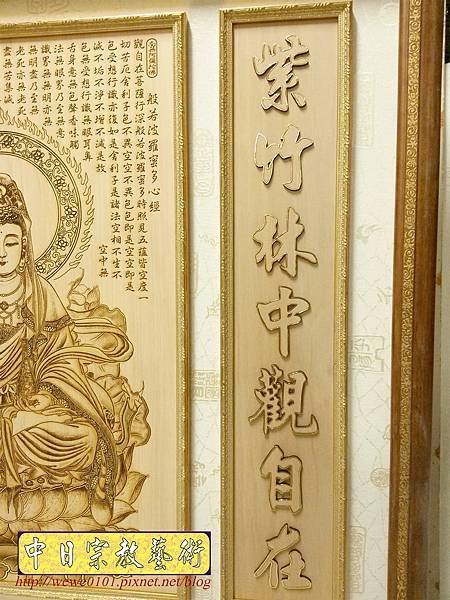 紫竹林中觀自在
般若波羅蜜多心經
觀自在菩薩行深般若波羅蜜多時照見五蘊皆空度一
切苦厄舍利子色不異空空不異色色即是空空即是
色受想行識亦復如是舍利子是諸法空相不生不
滅不垢不淨不增不減是故空中無
色無受想行識無眼耳鼻
舌身意無色聲香味觸
法無眼界乃至無意
識界無無明亦無
無明盡乃至無
老死亦無老死
盡無苦集滅
中日宗教藝術
http://wewe0101.pixnet.net/blog